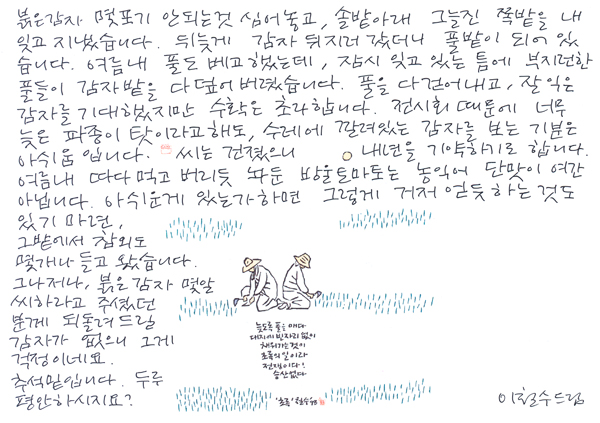 붉은감자 몇포기 안되는것 심어놓고, 솔밭아래 그늘진 쪽밭을 내
잊고 지냈습니다. 뒤늦게 감자 뒤지러 갔더니 풀밭이 되어 있
습니다. 여름내 풀도 베고했는데, 잠시 잊고 있는 틈에 부지런한
풀들이 감자밭을 다 덮어 버렸습니다. 풀을 다 걷어내고, 잘 익은
감자를 기대했지만 수확은 초라합니다. 전시회 때문에 너무
늦은 파종이 탓이라고 해도, 수레에 깔려있는 감자를 보는 기분은
아쉬움 입니다. 씨는 건졌으니 내년을 기약하기로 합니다.
여름내 따다 먹고 버리듯 놔둔 방울토마토는 농익어 단맛이 여간
아닙니다. 아쉬운게 있는가하면 그렇게 거저 얻듯하는 것도
있기 마련,
그밭에서 참외도
몇개나 들고 왔습니다.
그나저나, 붉은 감자 몇알
씨하라고 주셨던
분께 되돌려드릴
감자가 없으니 그게
걱정이네요.
추석밑입니다. 두루
평안하시지요?
늦도록 풀을 매다
대지에 빈자리 없이
채워가는것이
초록의 일이라
전쟁이다!
승산없다
'초록' 철수 98
이철수드림